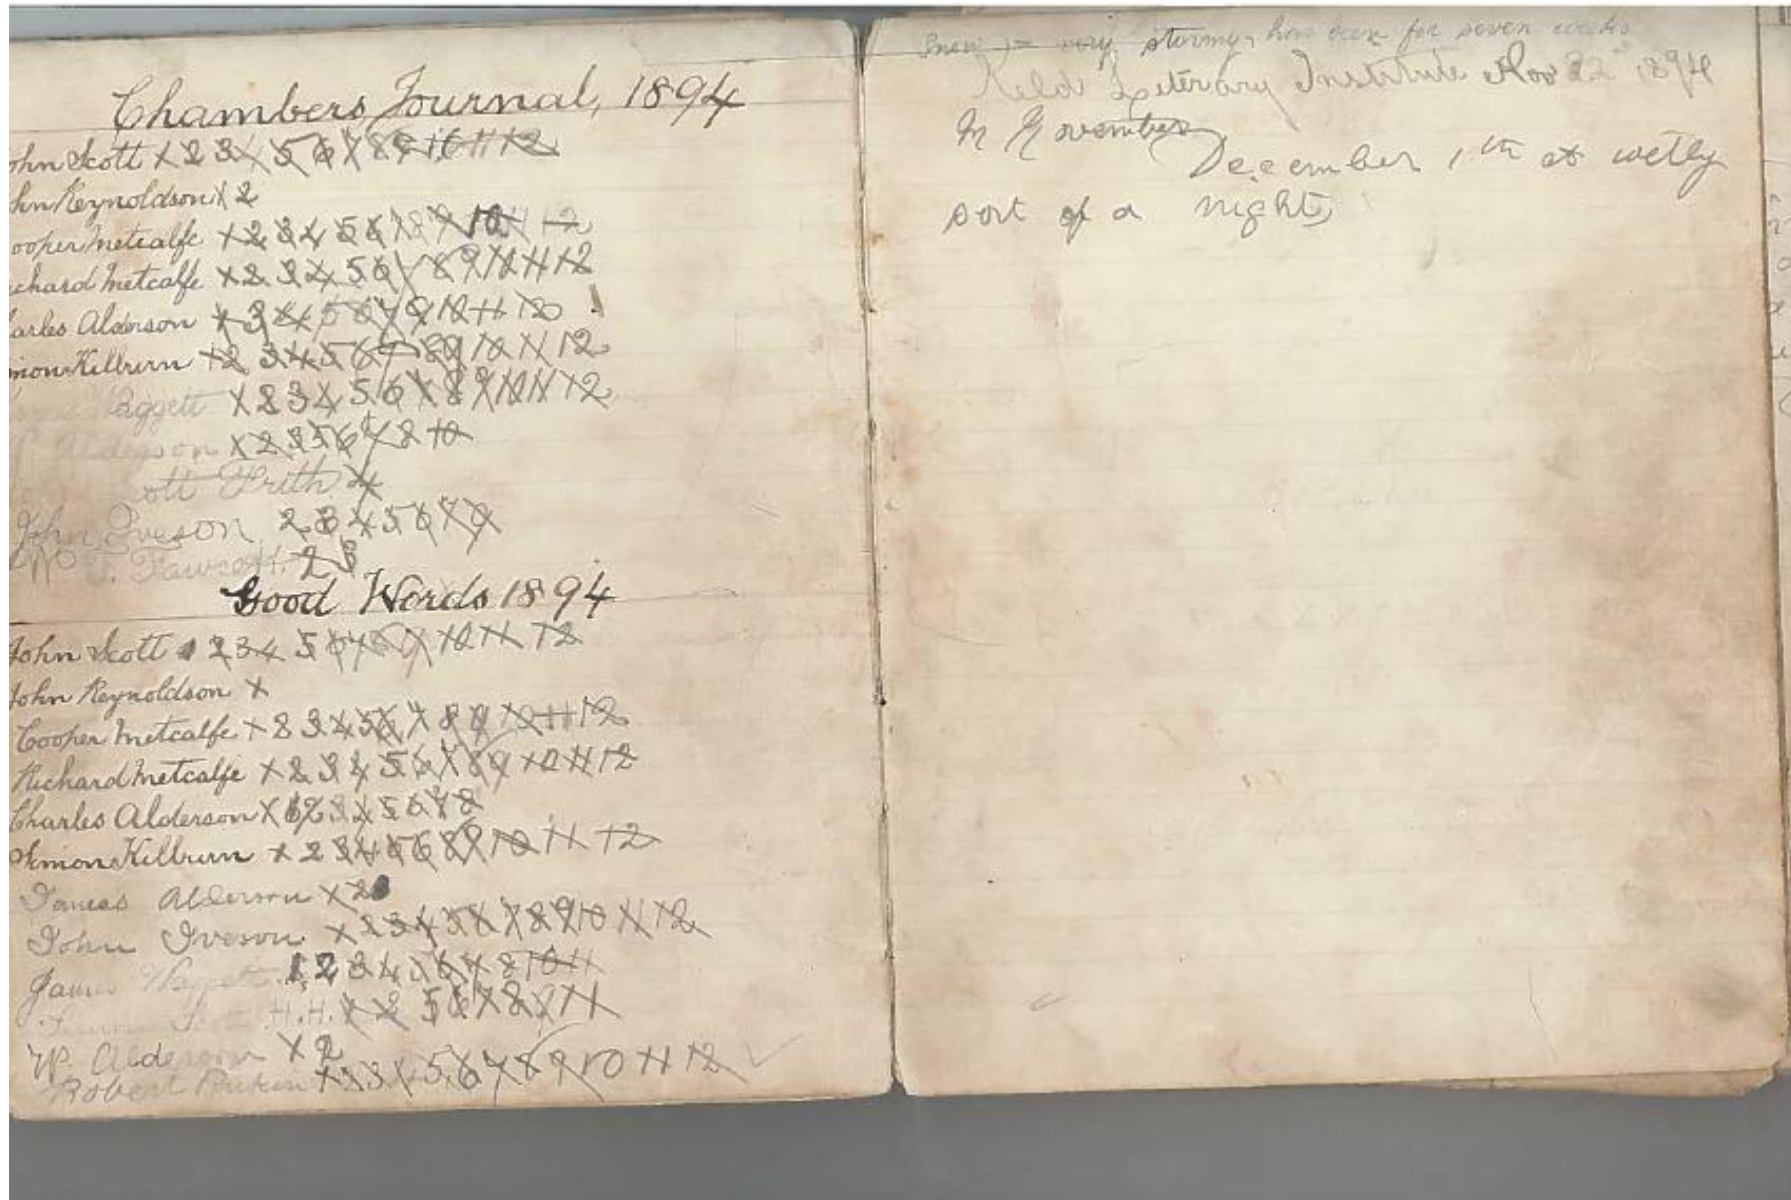 Chambers Journal, 1894
ohn Scott X 2 3 4 5 6 7 8 9 10 11 12
hn Reynoldson X 2
ooper Metcalfe X 2 3 4 5 6 7 8 9 10 11 12
chard Metcalfe X 2 3 4 5 6 7 8 9 10 11 12
arles Alderson X 3 4 5 6 7 9 10 11 12
mon Kilburn X 2 3 4 5 6 7 8 9 10 11 12
Waggett X 2 3 4 5 6 7 8 9 10 11 12
Alderson X 2 3 5 6 7 8 10
ott Frith 4
John Iveson 2 3 4 5 6 7 9
Wm T. Fawcett 2 3
Good Words 1894
John Scott 1 2 3 4 5 6 7 8 9 10 11 12
John Reynoldson X
Cooper Metcalfe X 2 3 4 5 6 7 8 9 10 11 12
Richard Metcalfe X 2 3 4 5 6 7 8 9 10 11 12
Charles Alderson X 2 3 4 5 6 7 8
Simon Kilburn X 2 3 4 5 6 8 9 10 11 12
James Alderson X 2
John Iveson X 2 3 4 5 6 7 8 9 10 11 12
James Waggett 1 2 3 4 5 6 7 8 10 11
H.H. X 2 5 6 7 8 9 11
W. Alderson X 2
Robert X 2 3 4 5 6 7 8 9 10 11 12
Snow very stormy, has been for seven weeks
Keld Literary Institute Nov 22 1894
In November
December 1th at wetly
sort of a night,